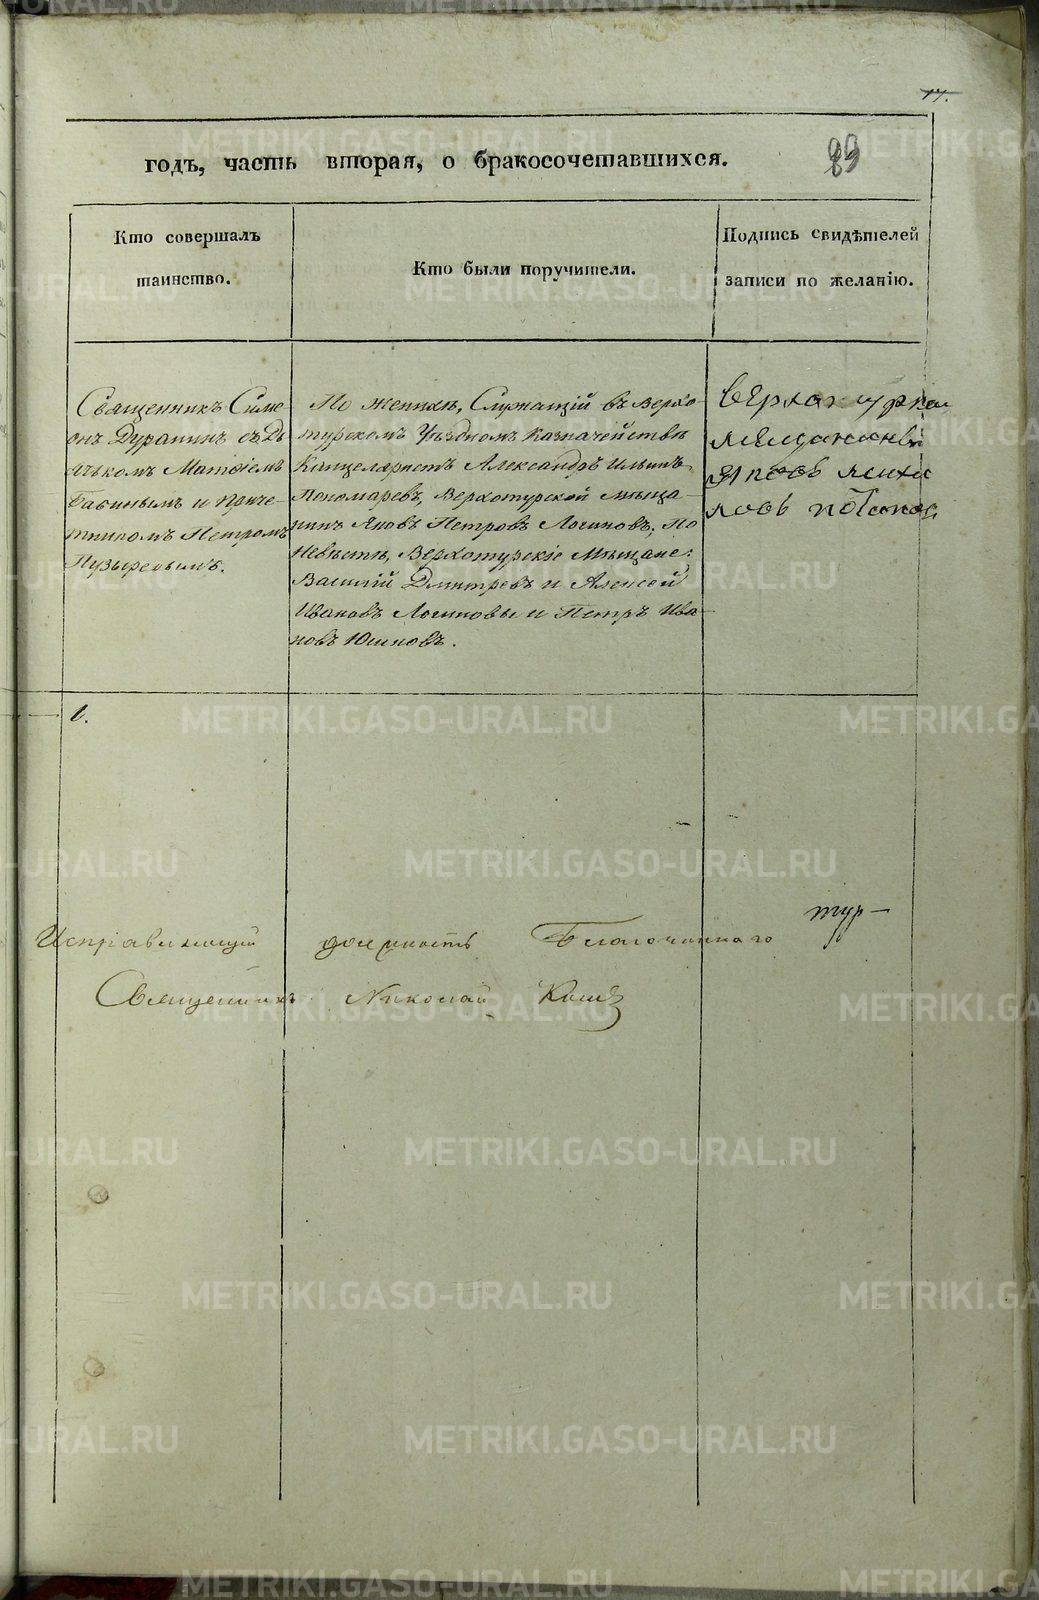 17.
годъ, часть вторая, о бракосочетавшихся.
89
Кто совершалъ
таинство.
Кто были поручители.
Подпись свидѣтелей
записи по желанію.
Священникъ Симе
онъ Дурапинъ съ Дь
ячкомъ Матѳіемъ
Бабинымъ и Приче-
тникомъ Петромъ
Пузыревымъ.
По женихѣ, Служащій въ Верхо-
турскомъ Уѣздномъ Казначействѣ
Канцеляристъ Александръ Ильинъ
Пономаревъ, Верхотурской мѣща-
нинъ Яковъ Петровъ Логиновъ; По
Невѣстѣ, Верхотурскіе Мѣщане:
Василій Дмитревъ и Алексей
Ивановъ Логиновы и Петръ Ива-
новъ Юшковъ.
верхотурской
мещининъ
яковъ
1.
тур-
Исправляющий должность Благочиннаго
Священникъ Николай
METRIKI.GASO-URAL.RU